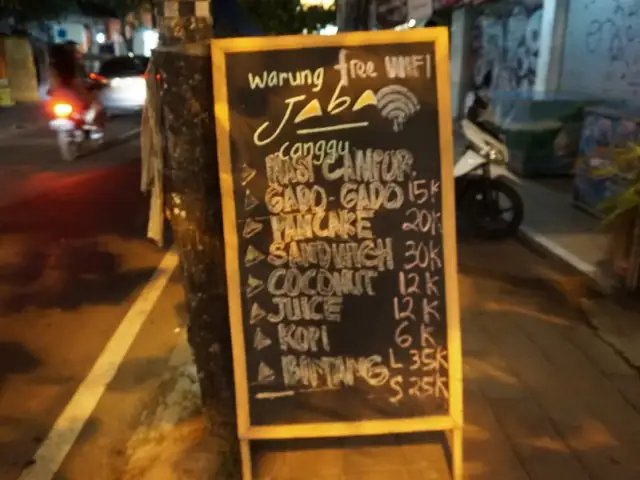 warung free WIFI
Jaba
canggu
NASI CAMPUR.
GADO-GADO 15K
PANCAKE 20K
SANDWICH 30K
COCONUT 12K
JUICE 12K
KOPI 6K
BINTANG L 35K
S 25K